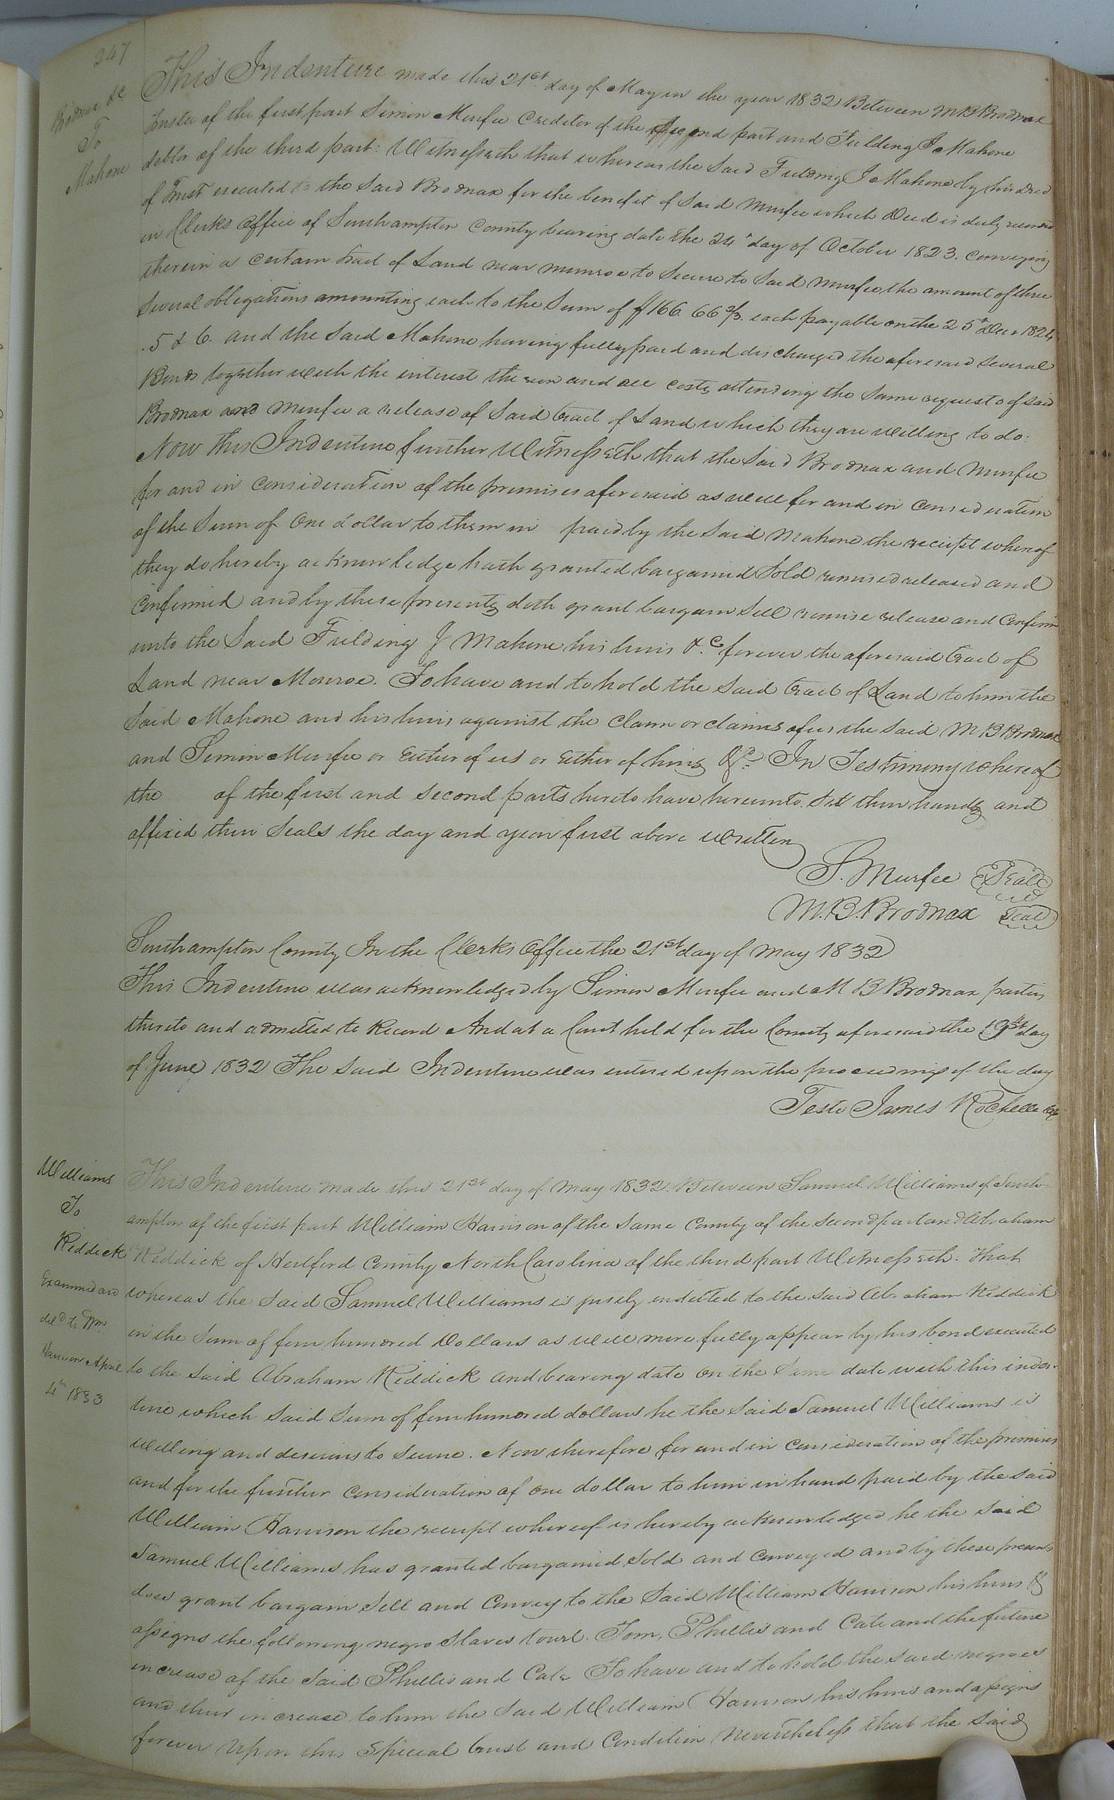 247
Brodnax &c
To
Mahone
This Indenture made this 21st day of May in the year 1832 Between M B Brodnax
Trustee of the first part Simon Murfee Creditor of the second part and Fielding J Mahone
debtor of the third part: Witnesseth that whereas the Said Fielding J Mahone by his deed
of Trust executed to the Said Brodnax for the benefit of Said Murfee which Deed is duly recorded
in Clerks office of Southampton County bearing date the 24th day of October 1823. Conveying
therein a certain tract of Land near Monroe to Secure to Said Murfee the amount of three
Several obligations amounting each to the Sum of $166.66 2/3 each payable on the 25th Decr 1824,
.5 & 6. and the Said Mahone having fully paid and discharged the aforesaid Several
Bonds together with the interest thereon and all costs attending the Same requests of said
Brodnax and Murfee a release of Said tract of Land which they are willing to do:
Now this Indenture further Witnesseth that the Said Brodnax and Murfee
for and in consideration of the premises aforesaid as well for and in consideration
of the Sum of One dollar to them in paid by the Said Mahone the receipt whereof
they do hereby acknowledge hath granted bargained Sold remised released and
Confirmed and by these presents doth grant bargain Sell remise release and Confirm
unto the Said Fielding J Mahone his heirs &c forever the aforesaid tract of
Land near Monroe. To have and to hold the Said tract of Land to him the
Said Mahone and his heirs against the Claim or claims of us the Said M B Brodnax
and Simon Murfee or either of us or either of heirs &c. In Testimony whereof
the of the first and Second parts hereto have hereunto Set their hands and
affixed their Seals the day and year first above written
S. Murfee Seal
M. B. Brodnax Seal
Southampton County In the Clerks Office the 21st day of May 1832
This Indenture was acknowledged by Simon Murfee and M B Brodnax parties
thereto and admitted to Record And at a Court held for the County aforesaid the day
of June 1832 The Said Indenture was entered upon the proceedings of the day
Teste James Rochelle
Williams
To
Riddick
Examined and
deld to Wm
Harrison April
4th 1833
This Indenture made this 21st day of May 1832. Between Samuel Williams of South
ampton of the first part William Harrison of the Same County of the Second part and Abraham
Riddick of Hertford County North Carolina of the third part Witnesseth. That
whereas the Said Samuel Williams is justly indebted to the Said Abraham Riddick
in the Sum of four hundred Dollars as will more fully appear by his bond executed
to the Said Abraham Riddick and bearing date on the Same date with this inden-
ture which Said Sum of four hundred dollars he the Said Samuel Williams is
willing and desirous to Secure. Now therefore for and in Consideration of the premises
and for the further Consideration of one dollar to him in hand paid by the Said
William Harrison the receipt whereof is hereby acknowledged he the Said
Samuel Williams has granted bargained Sold and Conveyed and by these presents
does grant bargain Sell and Convey to the Said William Harrison his heirs &
assigns the following negro Slaves towit. Tom, Phillis and Cate and the future
increase of the Said Phillis and Cate To have and to hold the Said negroes
and their increase to him the Said William Harrison his heirs and assigns
forever upon this Special trust and Condition Nevertheless that the Said